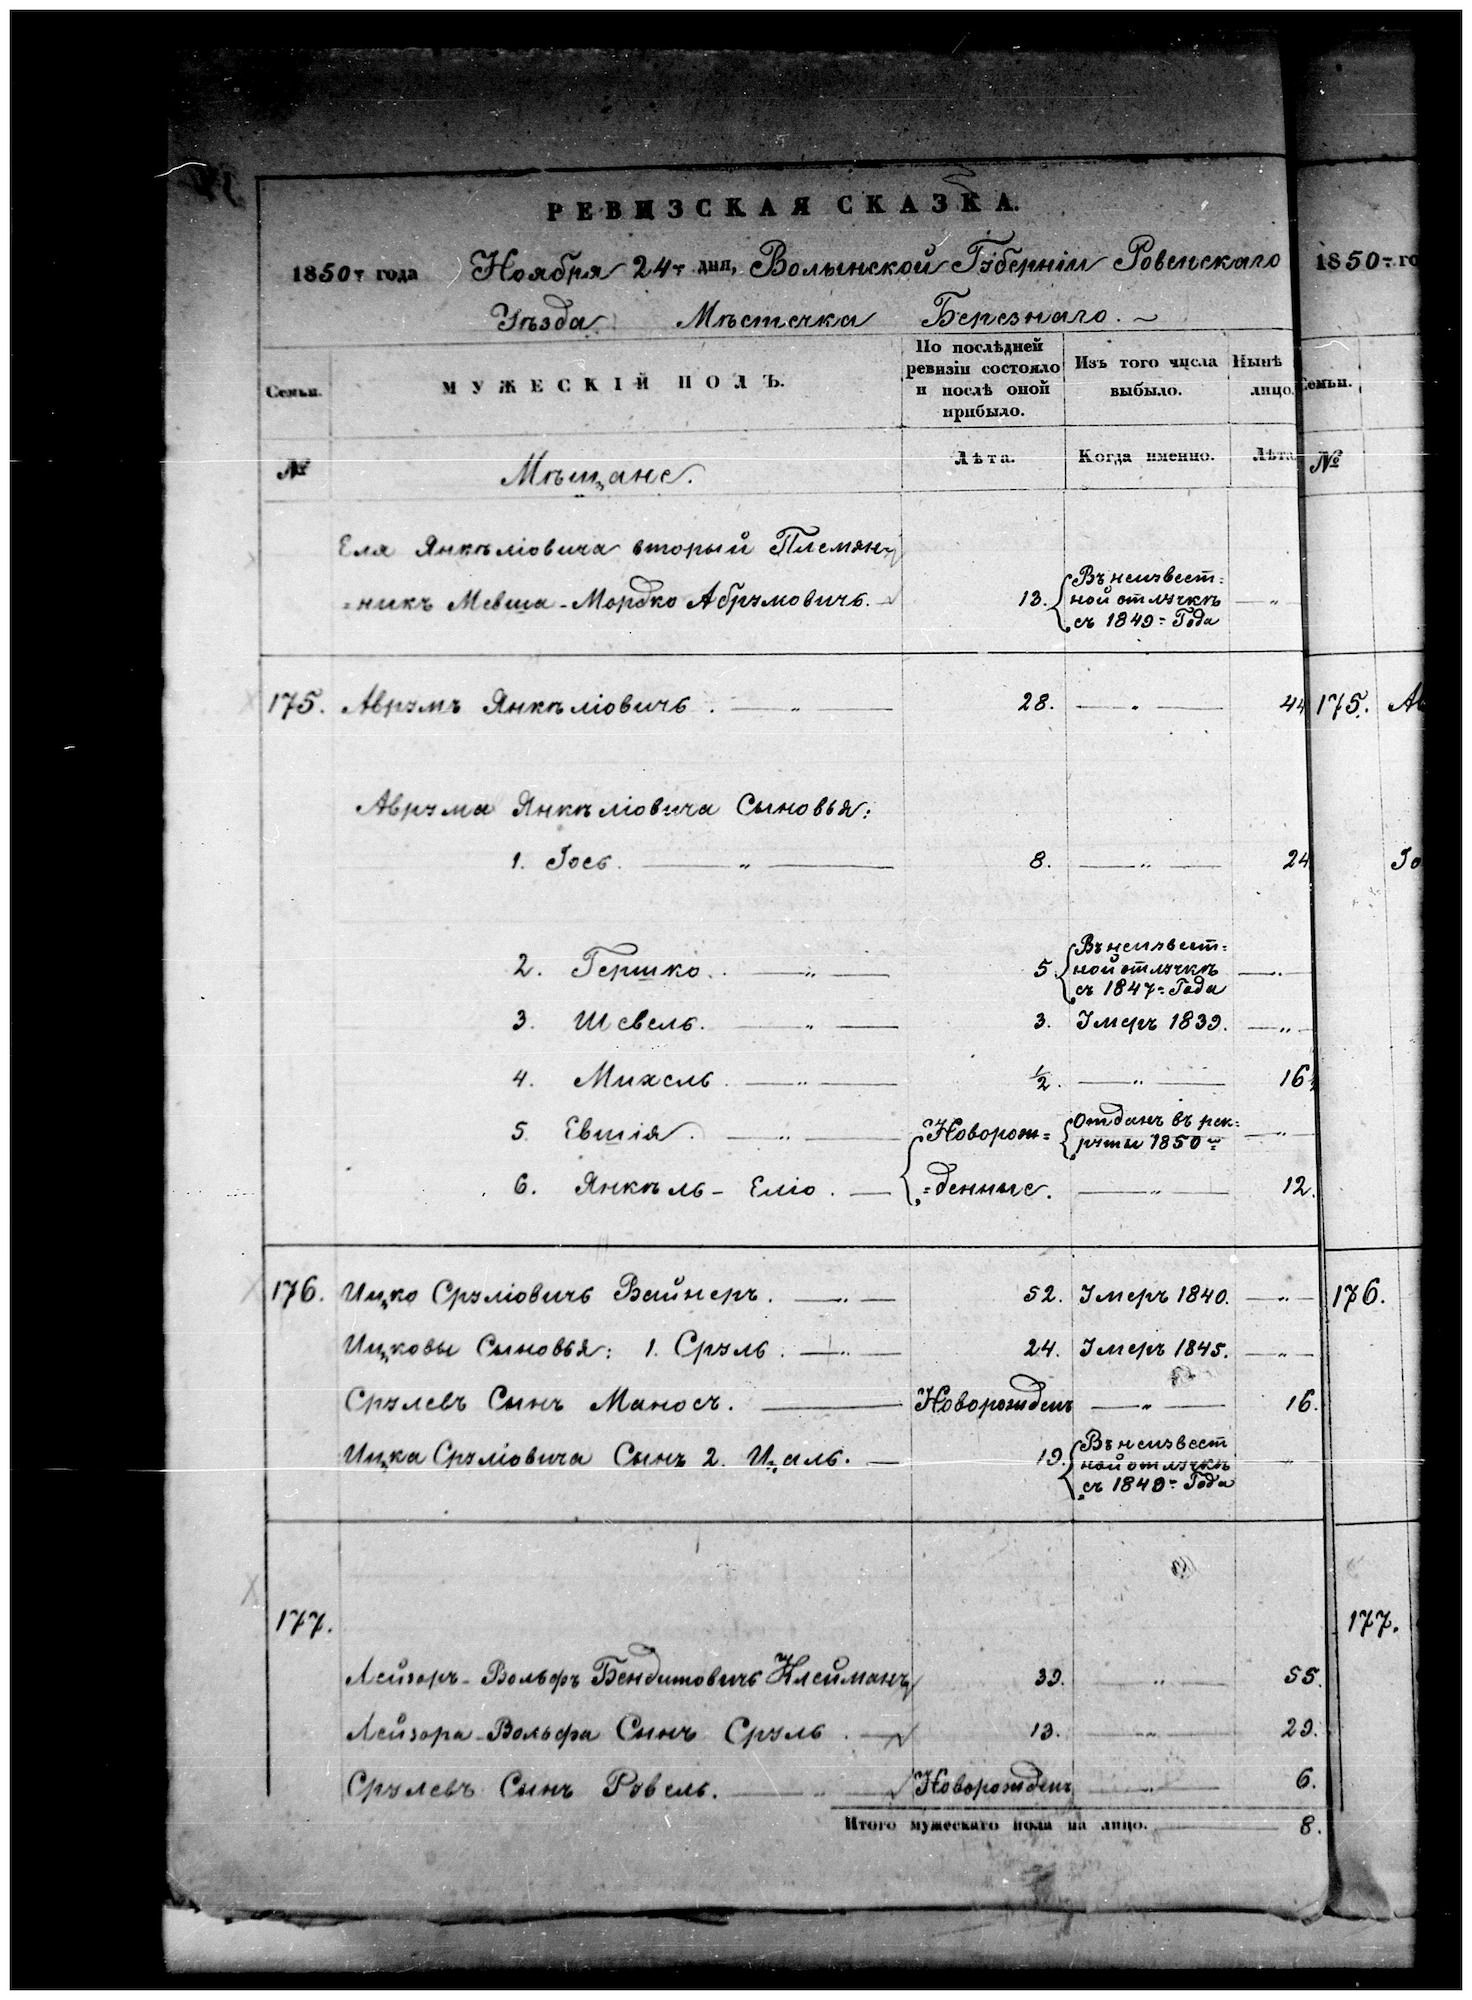 РЕВИЗСКАЯ СКАЗКА.
1850г года Ноября 24г дня, Волынской Губерніи Ровенскаго
Уѣзда Мѣстечка Березнаго.
Семьи.
МУЖЕСКІЙ ПОЛЪ.
По послѣдней ревизіи состояло и послѣ оной прибыло.
Изъ того числа выбыло.
Нынѣ на лицо.
№
Мѣщане.
Лѣта.
Когда именно.
Лѣта
Еля Янкѣліовича вторый Племян-
=никъ Мевша-Мордко Абрумовичъ. 13. Въ неизвест=
ной отлучкѣ
съ 1849= Года — „
175. Аврумъ Янкѣліовичъ. — „ — 28. — „ — 44
Аврума Янкѣліовича Сыновья:
1. Іось. — „ — 8. — „ — 24
2. Гершко. — „ — 5. Въ неизвест=
ной отлучкѣ
съ 1847= Года — „
3. Шевель. — „ — 3. Умеръ 1839. — „ —
4. Михель — „ — ½. — „ — 16
5. Евшія. — „ — Новорож= Отданъ въ рек=
руты 1850г — „
6. Янкѣль-Еліо. — =денные. — „ — 12.
176. Ицко Сруліовичъ Вайнеръ. — „ — 52. Умеръ 1840. — „ —
Ицковы Сыновья: 1. Сруль. — „ — 24. Умеръ 1845. — „ —
Срулевъ Сынъ Маносъ. — Новорожденъ — „ — 16.
Ицка Сруліовича Сынъ 2. Ицаль. — 19. Въ неизвест
ной отлучкѣ
съ 1849= Года „
177.
Лейзоръ-Вольфъ Бендитовичъ Клейманъ 39. — „ — 55.
Лейзора-Вольфа Сынъ Сруль. — 13. — „ — 29.
Срулевъ Сынъ Рувель. — „ — Новорожденъ — „ — 6.
Итого мужескаго пола на лицо. — 8.
1850г го
Семьи.
№
175. Ав
Іо
176.
177.